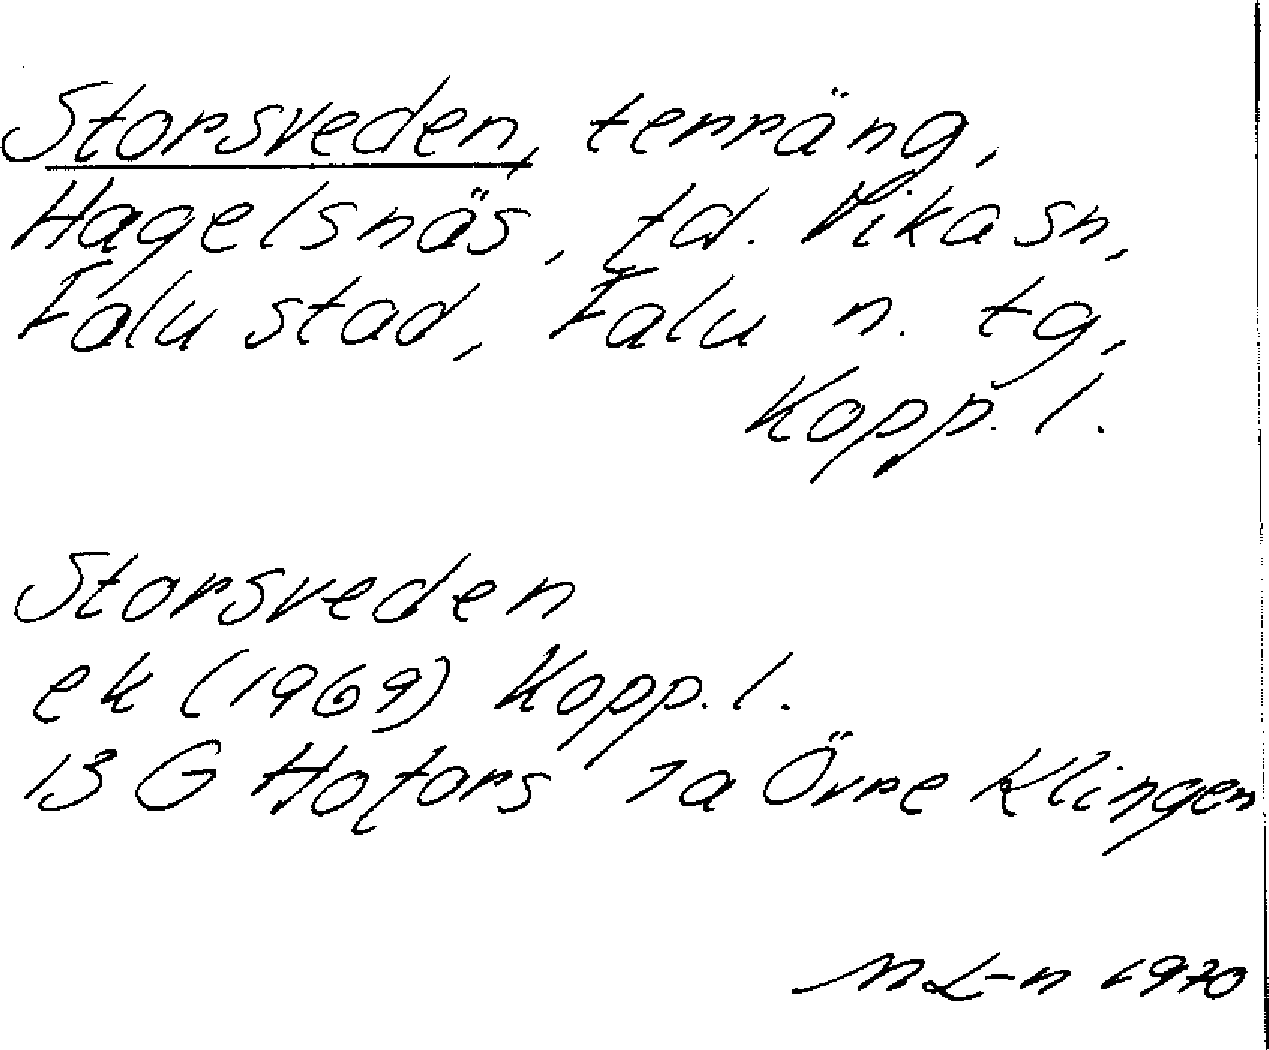 Storsveden, terräng,
Hagelsnäs, td. Vika sn,
Falu stad, Falu n. tg,
Kopp. l.
Storsveden
ek (1969) Kopp. l.
13 G Hofors 7a Övre Klingen
M L-n 1970